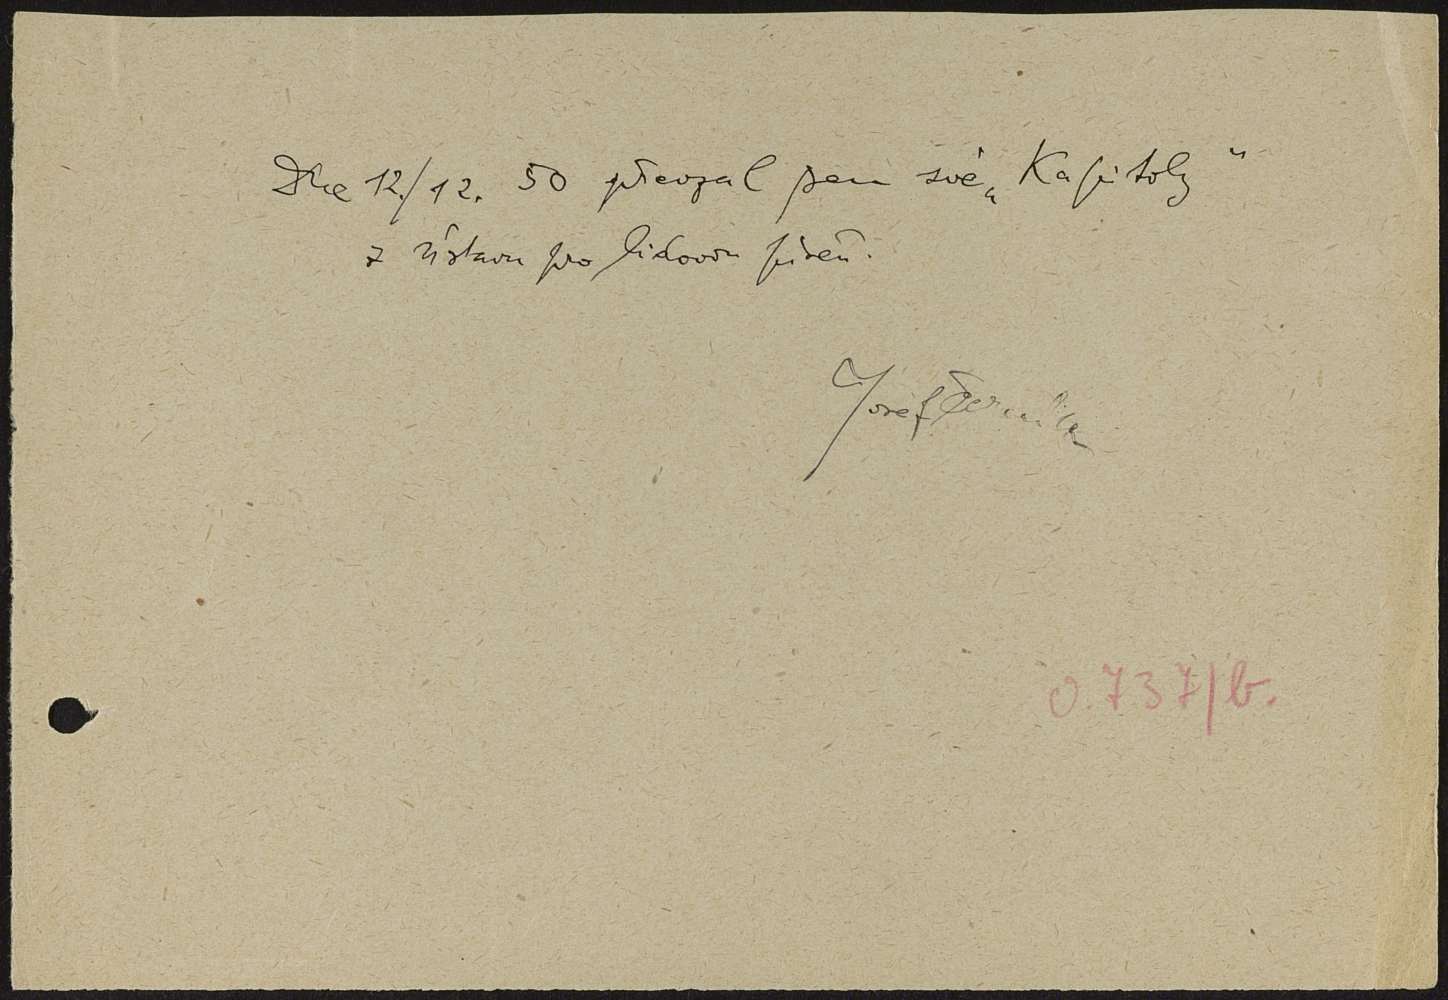 Dne 12./12. 50 převzal jsem své „Kapitoly“
z ústavu pro lidovou píseň.
Josef Černík
0.737/b.